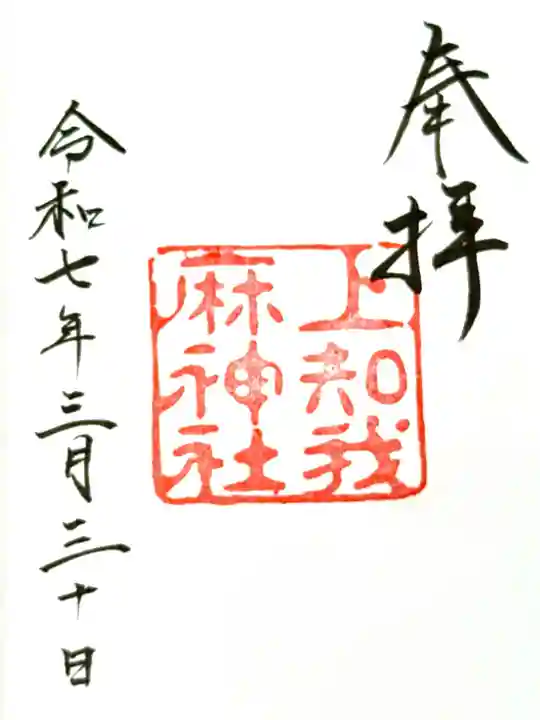 奉拝
上知我
麻神社
令和七年三月三十日